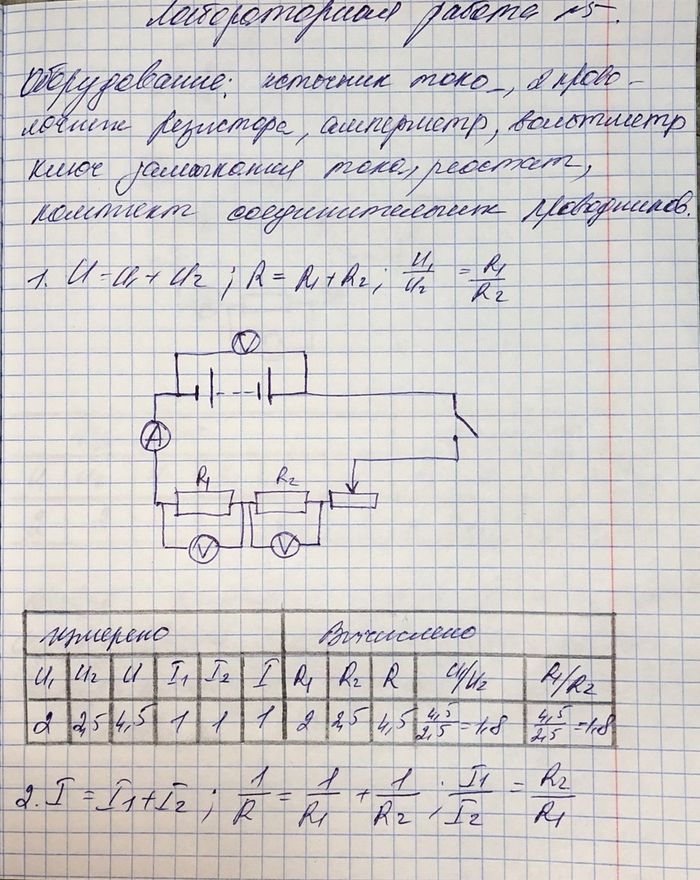 Лабораторная работа №5.
Оборудование: источник тока, 2 прово-
лочных резистора, амперметр, вольтметр
ключ замыкания тока, реостат,
комплект соединительных проводников.
1. U = U₁ + U₂ ; R = R₁ + R₂ ; U₁/U₂ = R₁/R₂
V
A
R₁ R₂
V V
измерено Вычислено
U₁ U₂ U I₁ I₂ I R₁ R₂ R U₁/U₂ R₁/R₂
2 2,5 4,5 1 1 1 2 2,5 4,5 4,5/2,5 = 1,8 4,5/2,5 = 1,8
2. I = I₁ + I₂ ; 1/R = 1/R₁ + 1/R₂ ; I₁/I₂ = R₂/R₁